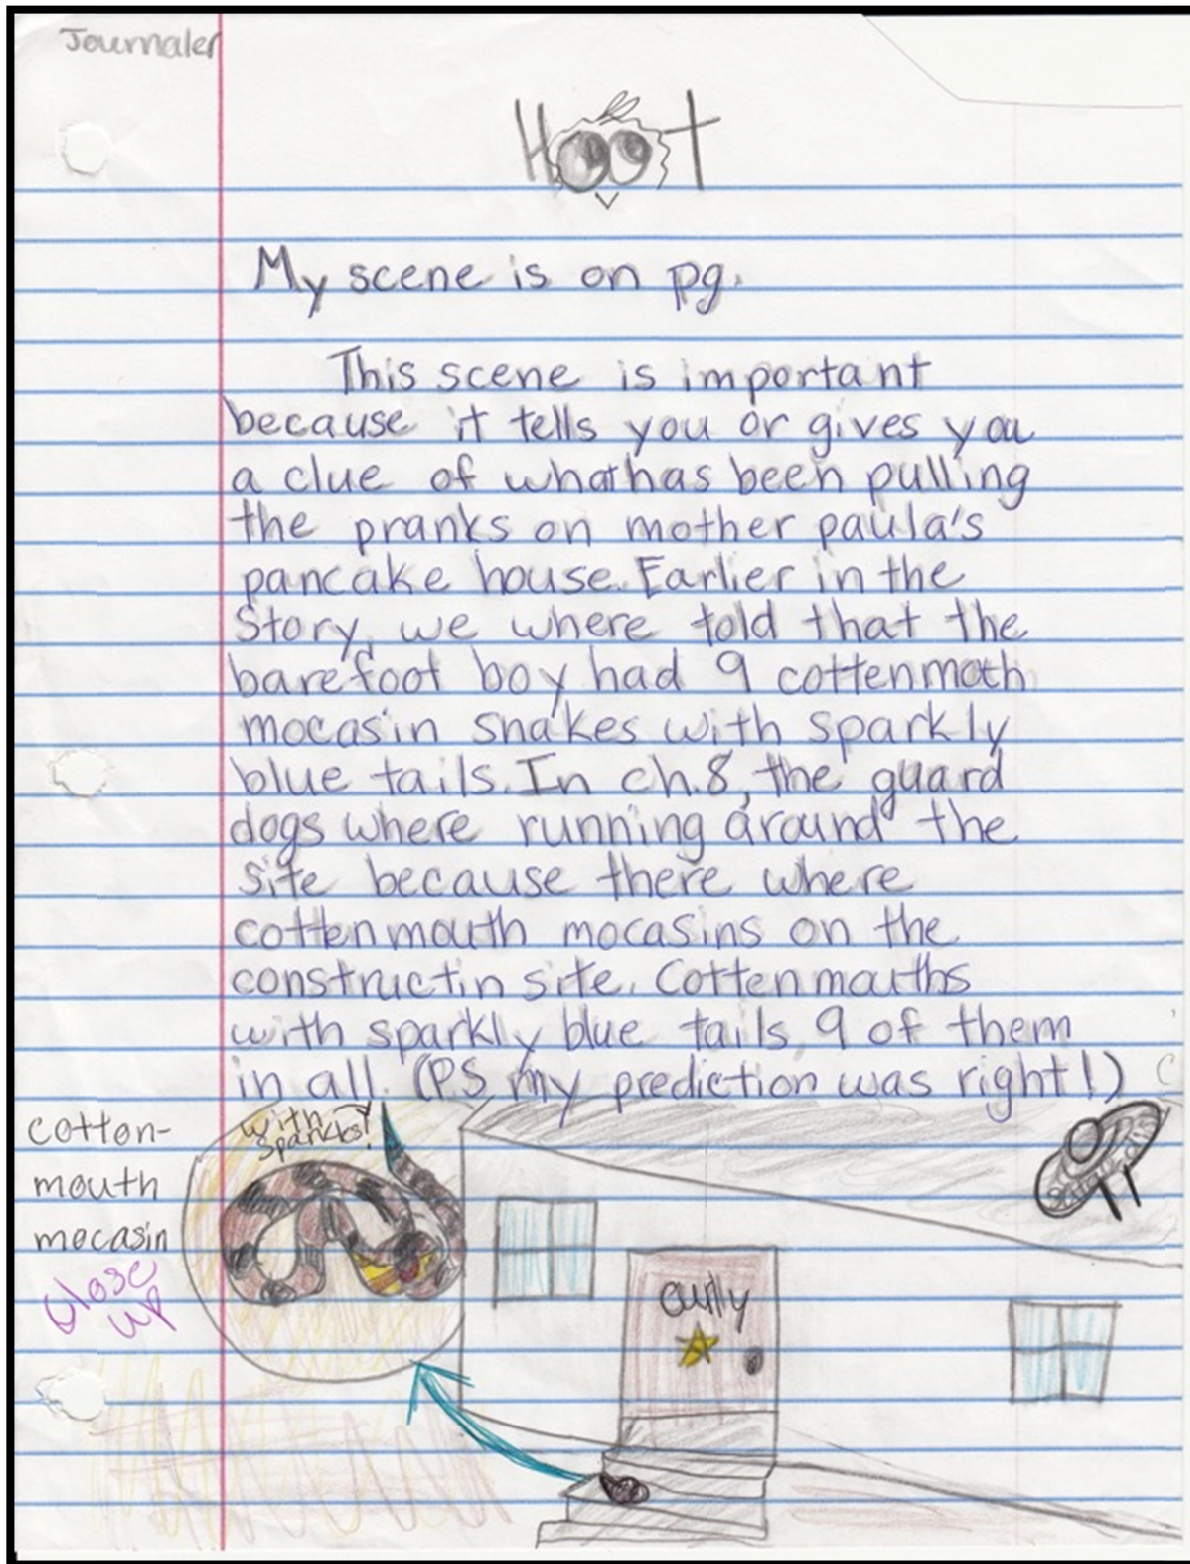 Journaler
Hoot
My scene is on pg.
This scene is important
because it tells you or gives you
a clue of what has been pulling
the pranks on mother paula's
pancake house. Earlier in the
Story, we where told that the
barefoot boy had 9 cottenmoth
mocasin snakes with sparkly
blue tails. In ch.8, the guard
dogs where running around the
site because there where
cottenmouth mocasins on the
constructin site. Cottenmouths
with sparkly blue tails, 9 of them
in all. (PS, my prediction was right!)
cotton-
mouth
mocasin
close
up
with
sparkles!
curlly